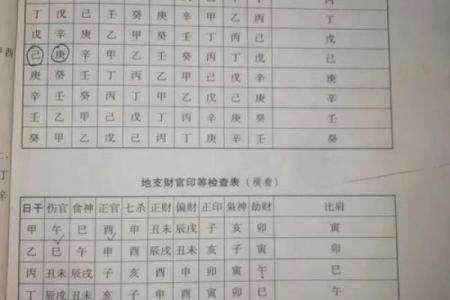 丁 戊 己 壬 癸 庚 辛 甲 乙 丙 丁
戊 辛 庚 乙 甲 癸 壬 丁 丙 己 戊
己 庚 辛 甲 乙 壬 癸 丙 丁 戊 己
庚 癸 壬 丁 丙 乙 甲 己 戊 辛 庚
辛 壬 癸 丙 丁 甲 乙 戊 己 庚 辛
壬 乙 甲 己 戊 丁 丙 辛 庚 癸 壬
癸 甲 乙 戊 己 丙 丁 庚 辛 壬 癸
地支财官印等检查表（横看）
日干 伤官 食神 正官 七杀 正财 偏财 正印 枭神 劫财 比肩
甲 午 巳 酉 申 丑未 辰戌 子 亥 卯 寅
乙 巳 午 申 酉 辰戌 丑未 亥 子 寅 卯
丙 丑未 辰戌 子 亥 酉 申 卯 寅 午 巳
丁 辰戌 丑未 亥 子 申 酉 寅 卯 巳 午